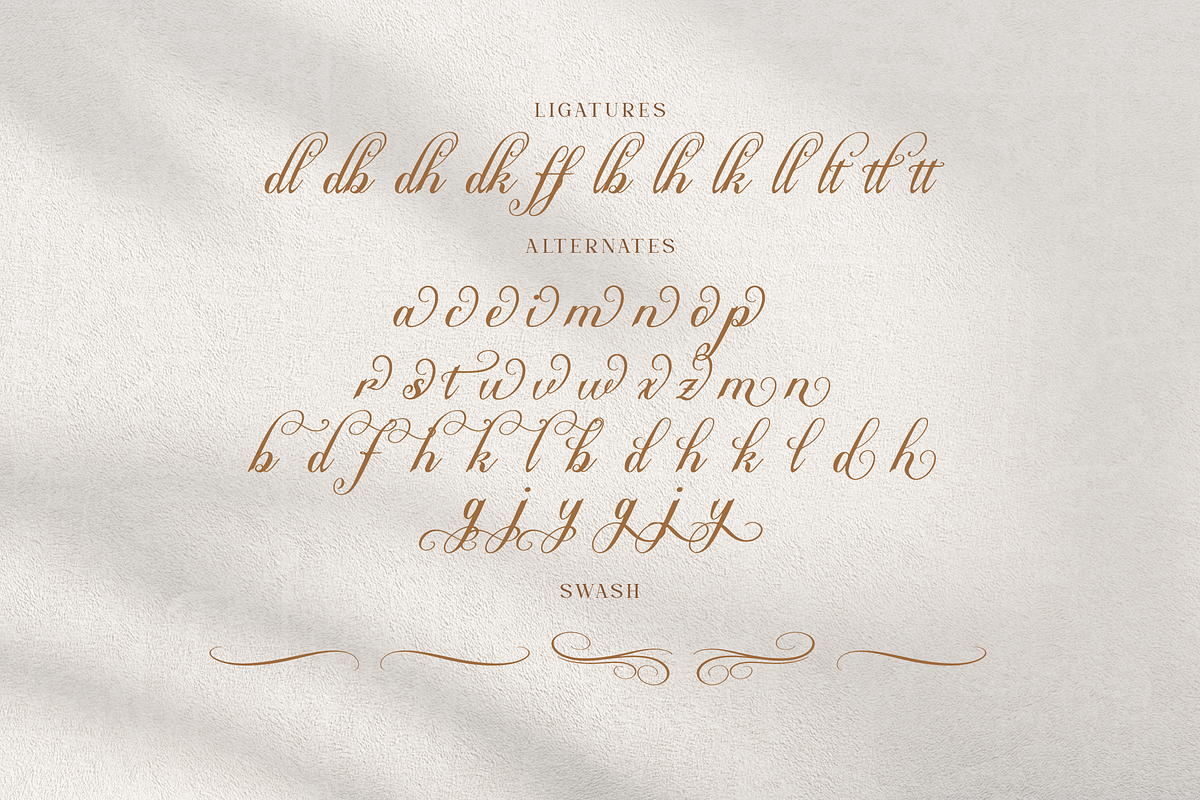 LIGATURES
dl db dh dk ff lb lh lk ll lt tl tt
ALTERNATES
a c e i m n o p
r s t u v w x z m n
b d f h k l b d h k l d h
g j y g j y
SWASH